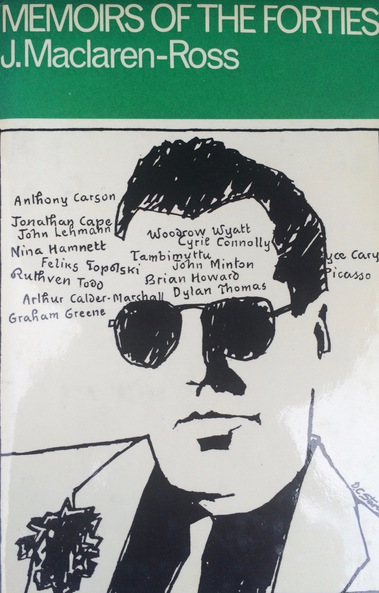 MEMOIRS OF THE FORTIES
J.Maclaren-Ross
Anthony Carson
Jonathan Cape
John Lehmann
Woodrow Wyatt
Cyril Connolly
Nina Hamnett
Tambimuttu
yce Cary
Feliks Topolski
John Minton
Picasso
Ruthven Todd
Brian Howard
Arthur Calder-Marshall
Dylan Thomas
Graham Greene